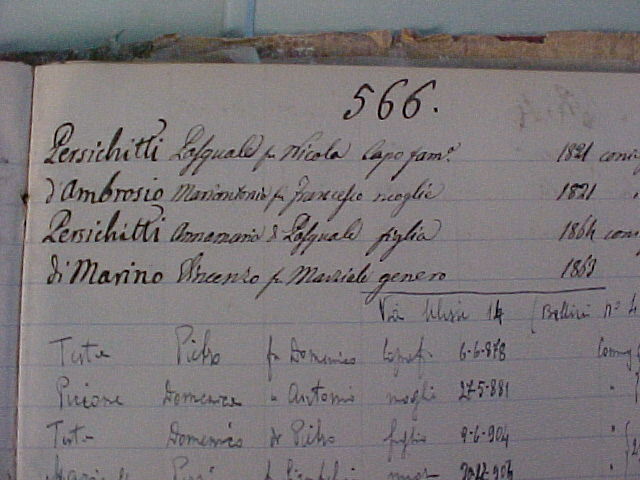 566.
Persichitti Pasquale fu Nicola Capo fam.ª 1821
d'Ambrosio Mariantonia fu Francesco moglie 1821
Persichitti Annamaria di Pasquale figlia 1864
di Marino Vincenzo fu Marziale genero 1863
Via 14 (Bellini nº 4
Testa Pietro fu Domenico capof. 6-6-878
Piccione Domenica " Antonio moglie 27-5-881 "
Testa Domenico di Pietro figlio 9-6-904 "